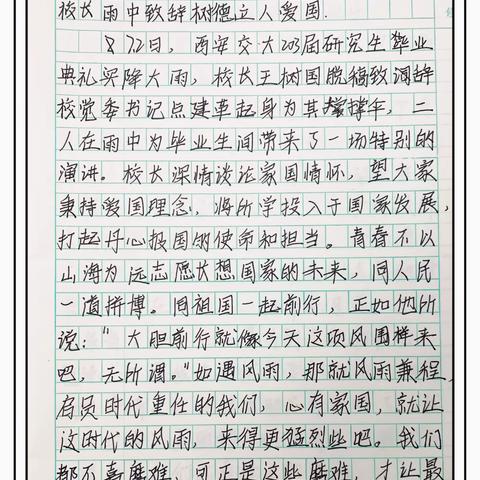 校长雨中致辞树德立人爱国.
8月22日，西安交大203届研究生毕业
典礼突降大雨，校长王树国脱稿致词辞
校党委书记卢建军起身为其撑伞，二
人在雨中为毕业生间带来了一场特别的
演讲。校长深情谈论家国情怀，望大家
秉持爱国理念，将所学投入于国家发展，
打起丹心报国的使命和担当。青春不以
山海为远志愿长想国家的未来，同人民
一道拼博。同祖国一起前行，正如他所
说："大胆前行就像今天这项风围样来
吧，无所谓。"如遇风雨，那就风雨兼程，
肩负时代重任的我们，心有家国，就让
这时代的风雨，来得更猛烈些吧。我们
都不喜磨难，可正是这些磨难，才让最